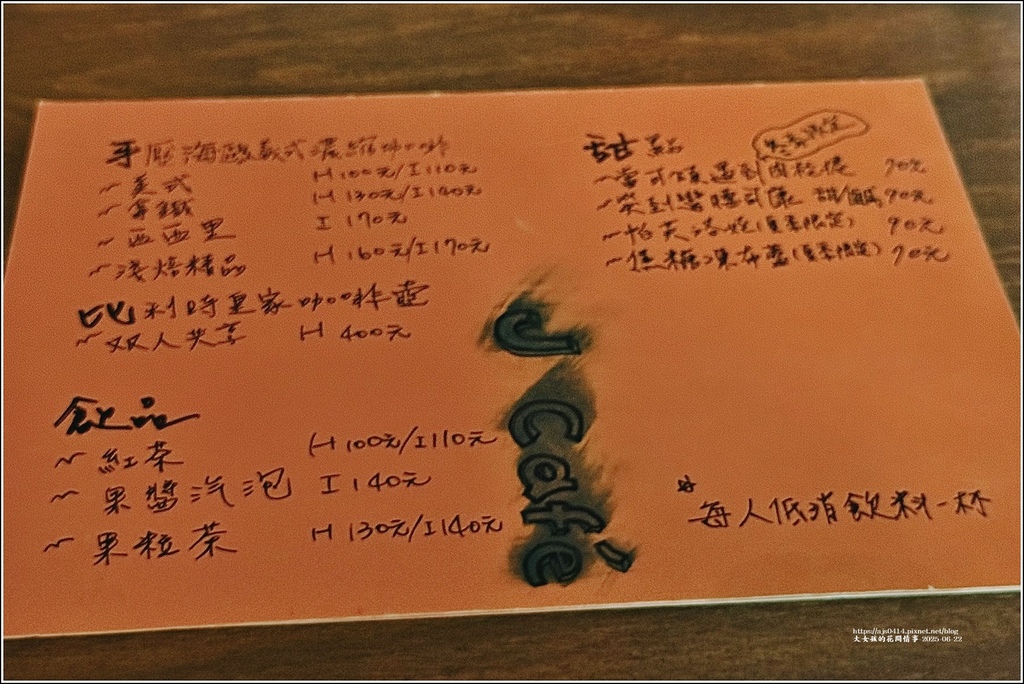 手壓海鷗義式濃縮咖啡
~美式 H 100元/I 110元
~拿鐵 H 130元/I 140元
~西西里 I 170元
~淺焙精品 H 160元/I 170元
比利時皇家咖啡壺
~双人共享 H 400元
飲品
~紅茶 H 100元/I 110元
~果醬汽泡 I 140元
~果粒茶 H 130元/I 140元
甜點
~當可頌遇到肉桂捲 90元
90元
(夏季限定) 90元
~焦糖凍布蕾(夏季限定) 90元
J Café
*每人低消飲料一杯
https://ajs0414.pixnet.net/blog
大女孩的花開情事 2025-06-22